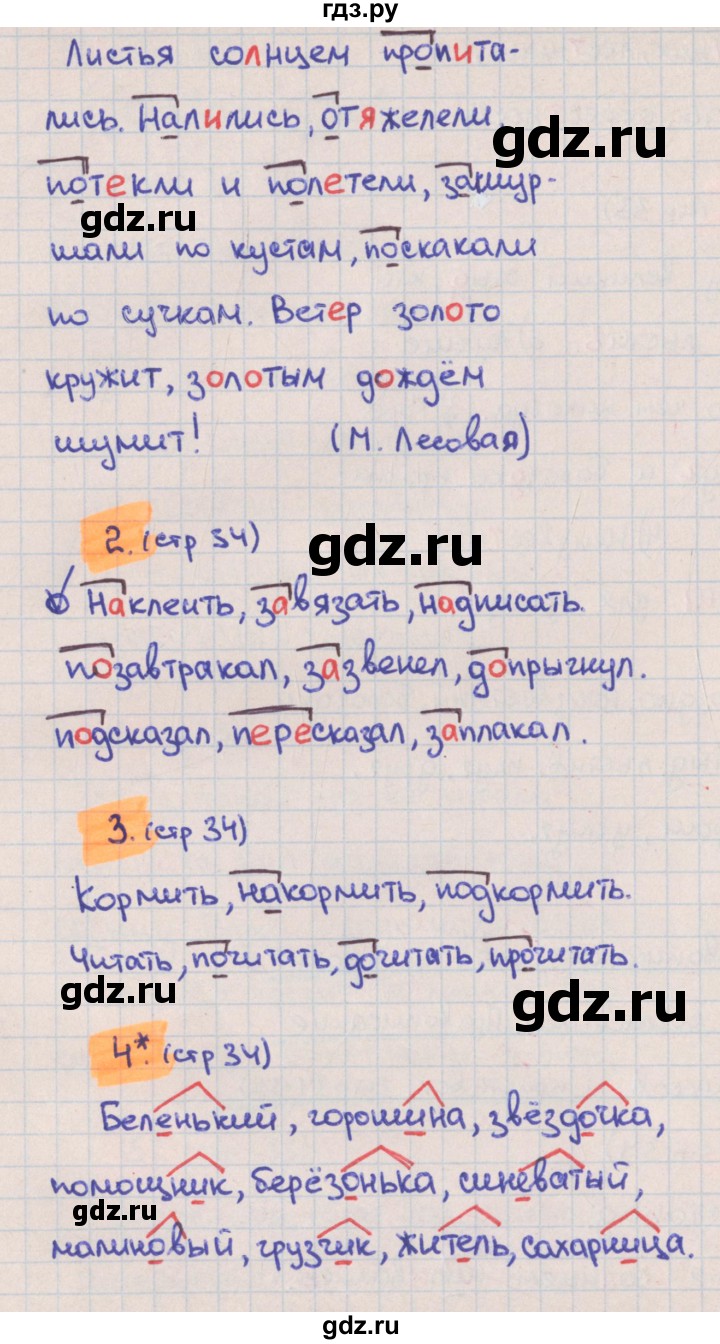 гдз.ру
Листья солнцем пропита-
лись. Налились, отяжелели.
gdz.ru
потекли и полетели, зашур-
gdz.ru
шали по кустам, поскакали
по сучкам. Ветер золото
кружит, золотым дождём
шумит! (М. Лесовая)
2. (стр 34)
gdz.ru
Наклеить, завязать, надписать.
позавтракал, зазвенел, допрыгнул.
подсказал, пересказал, заплакал.
3. (стр 34)
Кормить, накормить, подкормить.
Читать, почитать, дочитать, прочитать.
gdz.ru
gdz.ru
4*. (стр 34)
Беленький, горошина, звёздочка,
помощник, берёзонька, синеватый,
gdz.ru
малиновый, грузчик, житель, сахарница.
гдз.ру